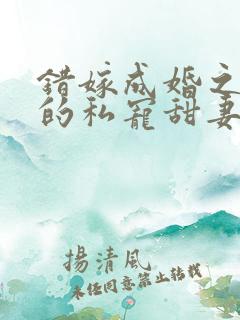 错嫁成婚之
的私宠甜妻
揚清風
未经同意禁止转载